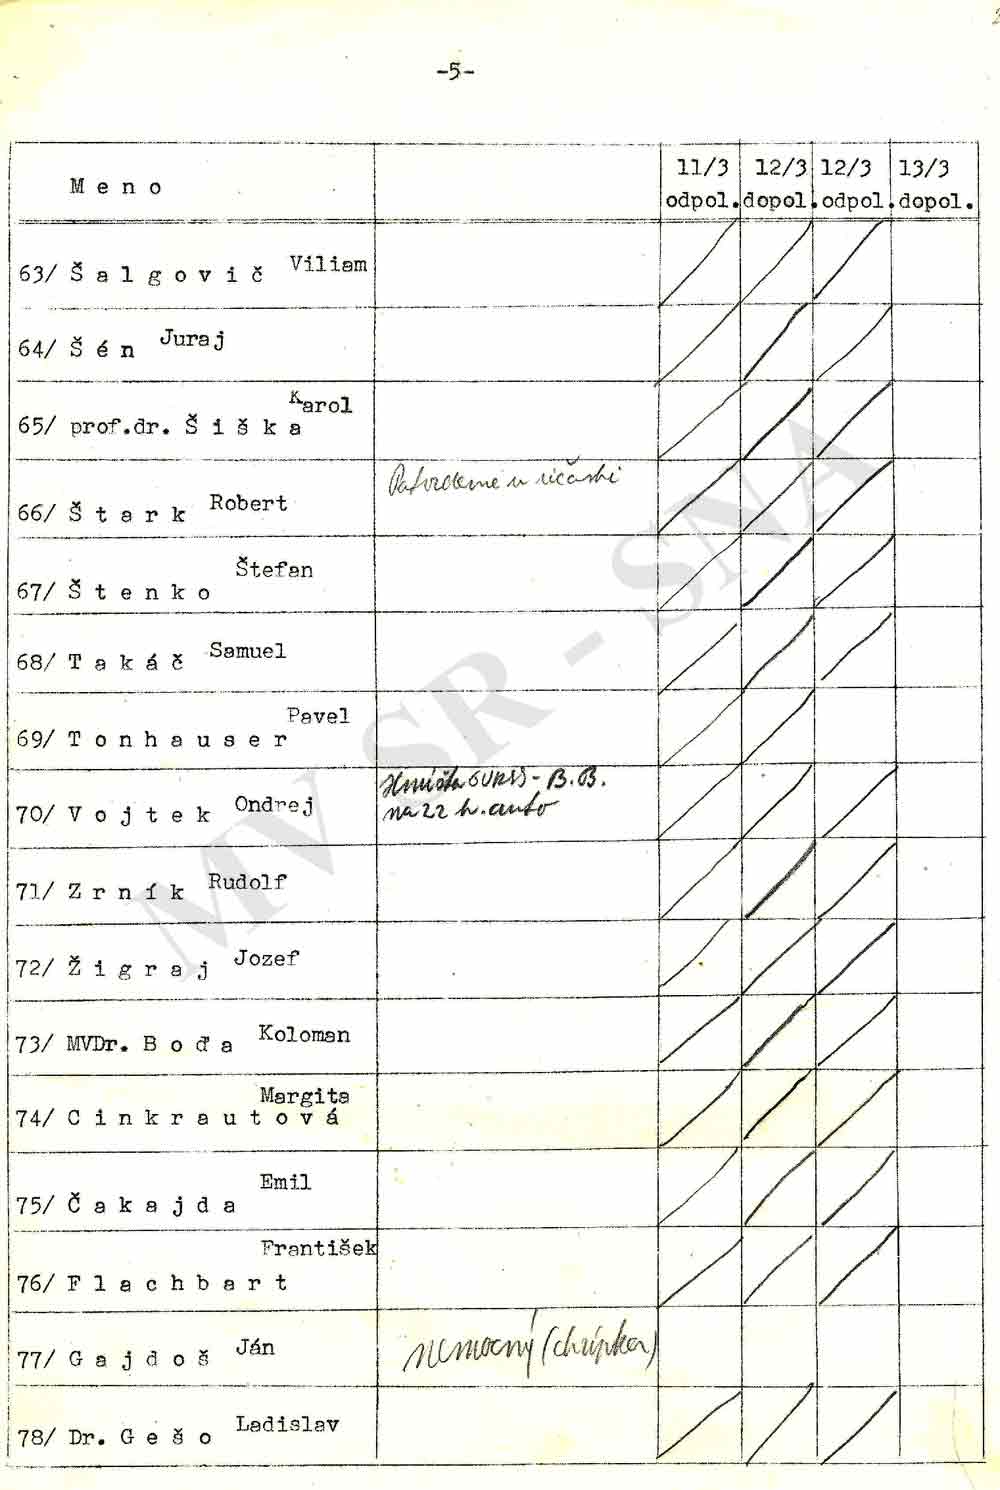 -5-
Meno 11/3 12/3 12/3 13/3
odpol. dopol. odpol. dopol.
63/ Šalgovič Viliam
64/ Šén Juraj
65/ prof.dr. Šiška Karol
66/ Štark Robert
67/ Štenko Štefan
68/ Takáč Samuel
69/ Tonhauser Pavel
70/ Vojtek Ondrej - B.B.
na 22 h. auto
71/ Zrník Rudolf
72/ Žigraj Jozef
73/ MVDr. Boďa Koloman
74/ Cinkrautová Margita
75/ Čakajda Emil
76/ Flachbart František
77/ Gajdoš Ján nemocný (chrípka)
78/ Dr. Gešo Ladislav
MV SR - SNA